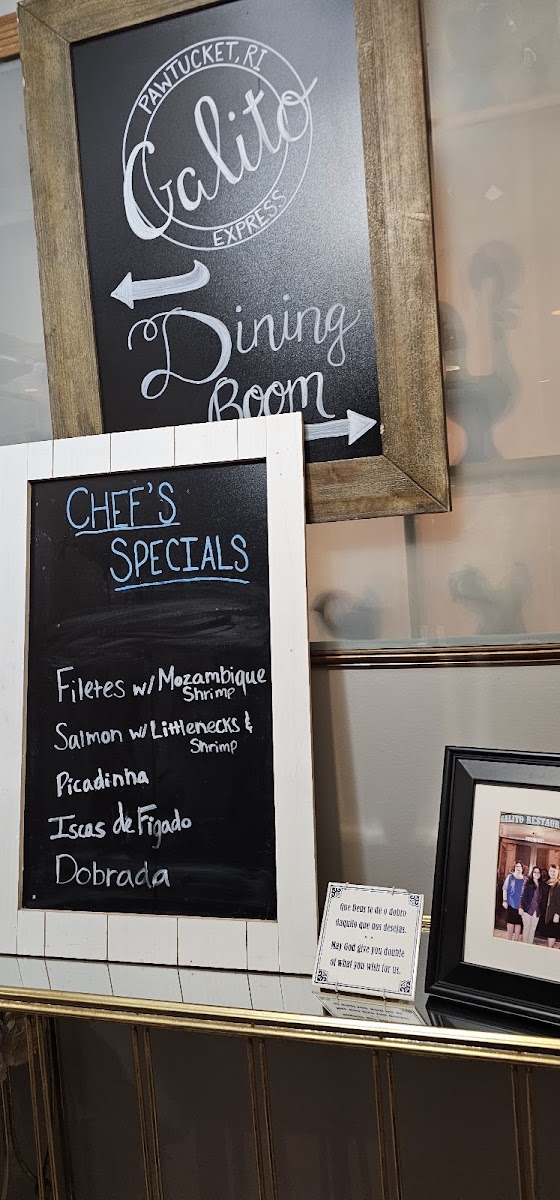 PAWTUCKET, RI
Galito
EXPRESS
Dining
Room
CHEF'S
SPECIALS
Filetes w/ Mozambique
Shrimp
Salmon w/ Littlenecks &
Shrimp
Picadinha
Iscas de Figado
Dobrada
Que Deus te dê o dobro
daquilo que nos desejas.
May God give you double
of what you wish for us.
GALITO RESTAUR